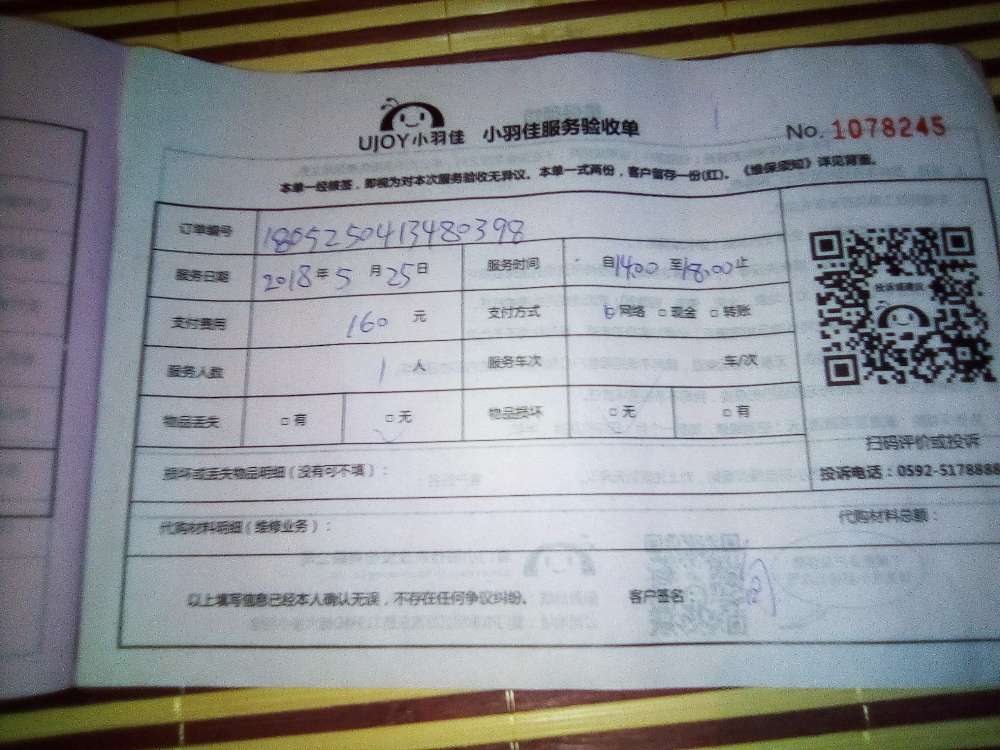 UJOY小羽佳 小羽佳服务验收单 No. 1078245
本单一经核签，即视为对本次服务验收无异议。本单一式两份，客户留存一份(红)。《维保须知》详见背面。
订单编号 1805250413480398
服务日期 2018年5月25日 服务时间 自14:00至18:00止
支付费用 160 元 支付方式 □网络 □现金 □转账
服务人数 1 人 服务车次 车/次
物品丢失 □有 □无 物品损坏 □无 □有
投诉或建议
扫码评价或投诉
投诉电话：0592-5178888
损坏或丢失物品明细（没有可不填）：
代购材料明细（维修业务）： 代购材料总额：
以上填写信息已经本人确认无误，不存在任何争议纠纷。 客户签名：